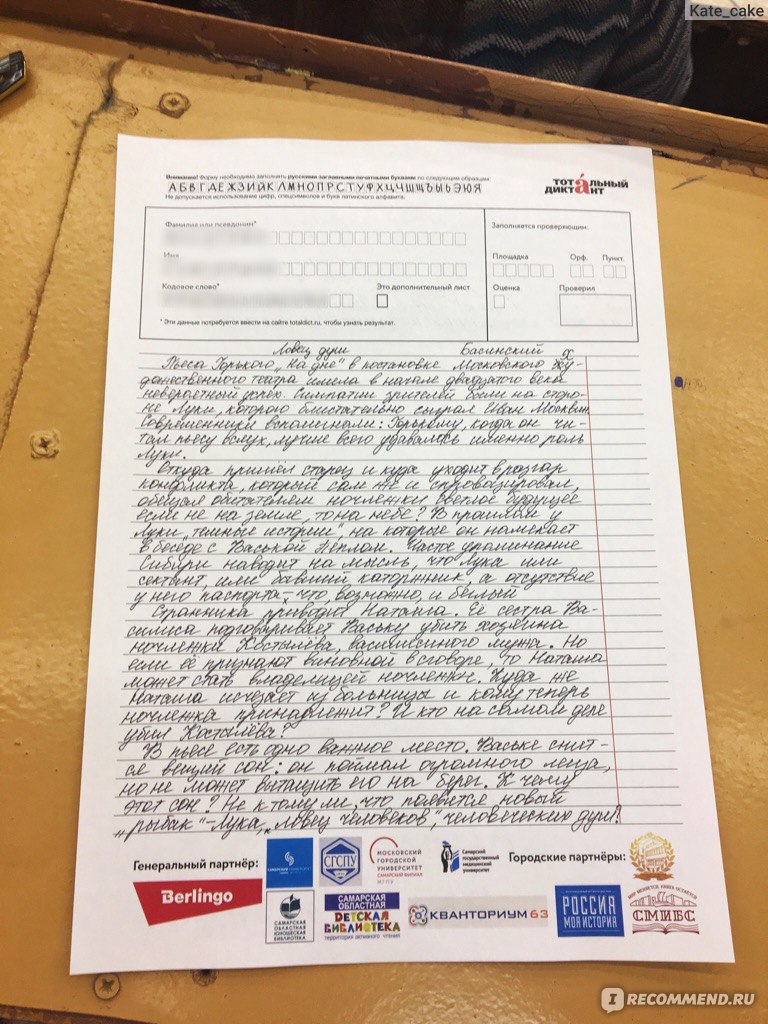 Kate_cake
Внимание! Форму необходимо заполнять русскими заглавными печатными буквами по следующим образцам:
АБВГДЕЖЗИЙКЛМНОПРСТУФХЦЧШЩЪЫЬЭЮЯ
Не допускается использование цифр, спецсимволов и букв латинского алфавита.
тотальный
диктант
Фамилия или псевдоним*
Имя
Кодовое слово*
Это дополнительный лист
* Эти данные потребуется ввести на сайте totaldict.ru, чтобы узнать результат.
Заполняется проверяющим:
Площадка Орф. Пункт.
Оценка Проверил
Ловец душ Басинский
Пьеса Горького „На дне" в постановке Московского Ху-
дожественного театра имела в начале двадцатого века
невероятный успех. Симпатии зрителей были на сторо-
не Луки, которого блистательно сыграл Иван Москвин.
Современники вспоминали: Горькому, когда он чи-
тал пьесу вслух, лучше всего удавались именно роль
Луки.
Откуда пришёл старец и куда уходит в разгар
конфликта, который сам же и спровоцировал,
обещая обитателем ночлежки светлое будущее
если не на земле, то на небе? В прошлом у
Луки „темные истории", на которые он намекает
в беседе с Васькой Пеплом. Частое упоминание
Сибири наводит на мысль, что Лука или
сектант, или бывший каторжник, а отсутствие
у него паспорта – что, возможно, и беглый.
Странника приводит Наташа. Её сестра Ва-
силиса подговаривает Ваську убить хозяина
ночлежки Костылёва, василисиного мужа. Но
если её признают виновной в сговоре, то Наташа
может стать владелицей ночлежки. Куда же
Наташа исчезает из больницы и кому теперь
ночлежка принадлежит? И кто на самом деле
убил Костылёва?
В пьесе есть одно важное место. Ваське снит-
ся вещий сон: он поймал огромного леща,
но не может вытащить его на берег. К чему
этот сон? Не к тому ли, что появится новый
„рыбак" – Лука, „ловец человеков", человеческих душ?
Генеральный партнёр:
Berlingo
СГСПУ
МОСКОВСКИЙ
ГОРОДСКОЙ
УНИВЕРСИТЕТ
САМАРСКИЙ ФИЛИАЛ
МГПУ
Самарский
государственный
медицинский
университет
Городские партнёры:
САМАРСКАЯ
ОБЛАСТНАЯ
ЮНОШЕСКАЯ
БИБЛИОТЕКА
САМАРСКАЯ ОБЛАСТНАЯ
ДЕТСКАЯ
БИБЛИОТЕКА
территория активного чтения
КВАНТОРИУМ 63
РОССИЯ
МОЯ ИСТОРИЯ
СМИБС
IRECOMMEND.RU